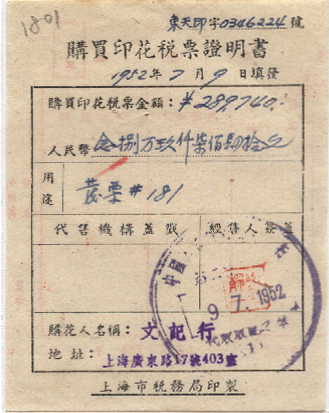 1801
東天印字0346224號
購買印花税票證明書
1952年7月9日填發
購買印花税票金額：¥289,740.-
人民幣 捌万玖仟柒佰肆拾元
用途
發票#181
代售機構蓋戳 經售人簽蓋
中國人
9.7.1952
購花人名稱：文記行
地址：上海廣東路17號403室
上海市税務局印製